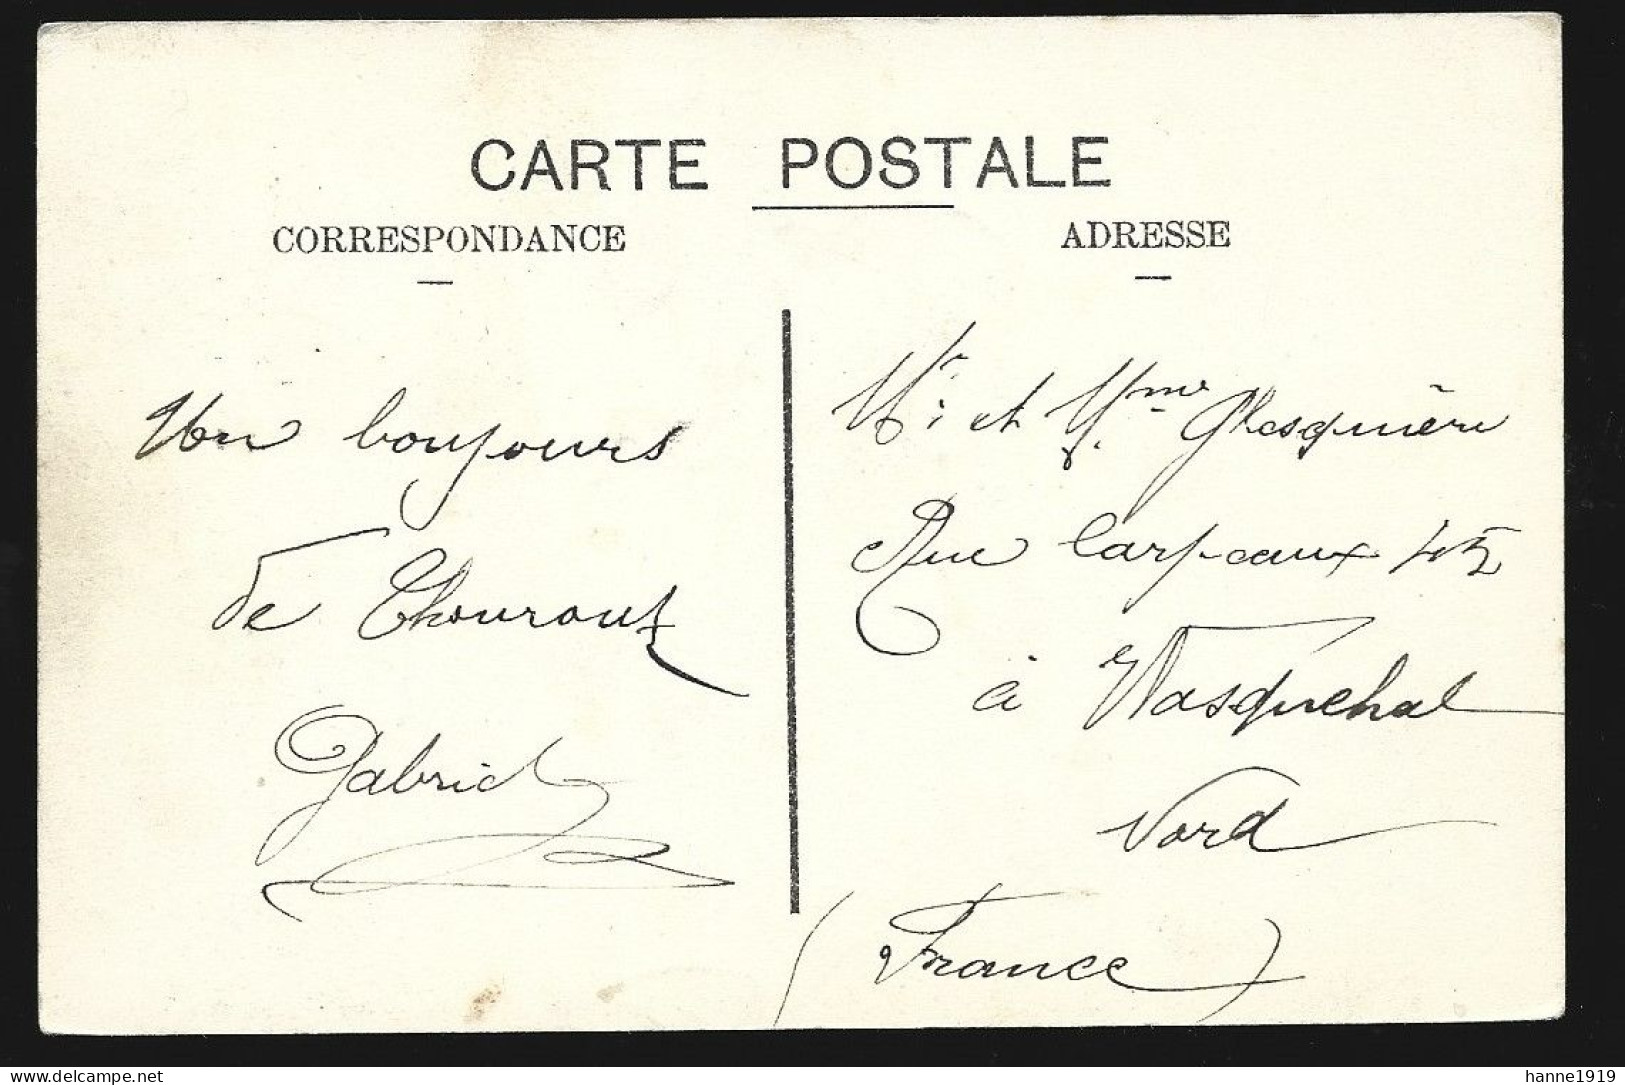 CARTE POSTALE
CORRESPONDANCE
ADRESSE
Un boujours
de Thourout
Gabriel
Mr. et Mme Ghesquière
Rue Carpeaux 45
à Wasquehal
Nord
(France)
delcampe.net
hanne1919